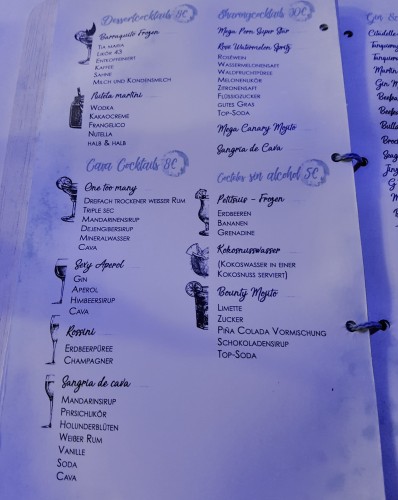 Dessertcocktails 8€
Barraquito Frozen
Tia maria
Likör 43
Kaffee
Sahne
Milch und Kondensmilch
Nutella martini
Wodka
Kakaocreme
Frangelico
Nutella
half & half
Cava Cocktails 8€
One too many
Dreifach trockener weisser Rum
Triple sec
Mandarinensirup
Mineralwasser
Cava
Sexy Aperol
Gin
Aperol
Himbeersirup
Cava
Rossini
Erdbeerpüree
Champagner
Sangria de cava
Mandarinsirup
Pfirsichlikör
Holunderblüten
Weißer Rum
Vanille
Soda
Cava
10€
Mega Porn Super Star
Rose Watermelon Spritz
Roséwein
Wassermelonensaft
Waldfruchtpüree
Melonenlikör
Zitronensaft
Flüssigzucker
gutes Gras
Top-Soda
Mega Canary Mojito
Sangria de Cava
sin alcohol 5€
Pelitrius - Frozen
Erdbeeren
Bananen
Grenadine
Kokosnusswasser
(Kokoswasser in einer
Kokosnuss serviert)
Bounty Mojito
Limette
Zucker
Piña Colada Vormischung
Schokoladensirup
Top-Soda